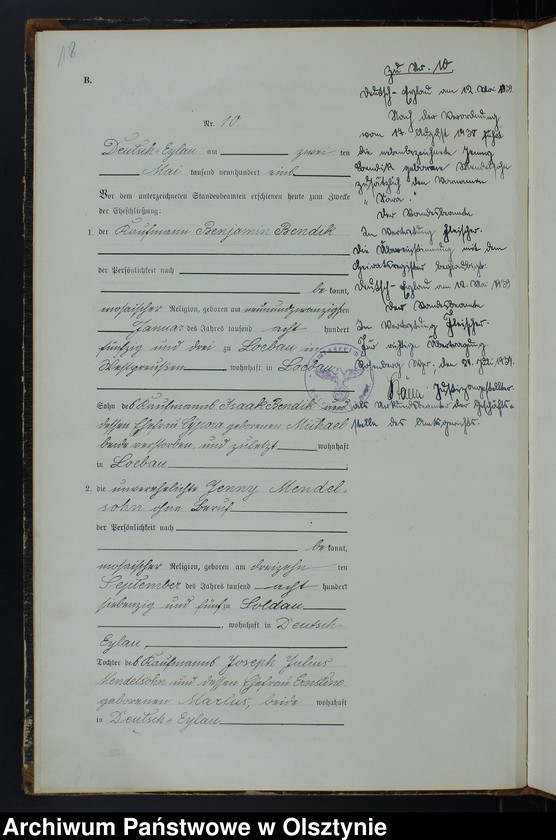 18
B.
Nr. 10.
Deutsch-Eylau am zwei ten
Mai tausend neunhundert eins
Vor dem unterzeichneten Standesbeamten erschienen heute zum Zwecke
der Eheschließung:
1. der Kaufmann Benjamin Bendik
der Persönlichkeit nach
be kannt,
mosaischer Religion, geboren am neunundzwanzigsten
Januar des Jahres tausend acht hundert
fünfzig und drei zu Loebau in
Westpreußen wohnhaft in Loebau
Sohn des Kaufmanns Isaak Bendik und
dessen Ehefrau geborenen Michael
beide verstorben und zuletzt wohnhaft
in Loebau
2. die unverehelichte Jenny Mendel-
sohn ohne Beruf
der Persönlichkeit nach
be kannt,
mosaischer Religion, geboren am dreizehn ten
September des Jahres tausend acht hundert
siebenzig und fünf zu Soldau
, wohnhaft in Deutsch-
Eylau,
Tochter des Kaufmanns Joseph Julius
Mendelsohn und dessen Ehefrau Ernstine
geborenen Marcus, beide wohnhaft
in Deutsch-Eylau
zu Nr. 10
Deutsch-Eylau am 12. Mai 1939.
Nach der Verordnung
vom 17. August 1938 führt
die nebenbezeichnete Jenny
Bendik geborene Mendelsohn
zusätzlich den Vornamen
"Sara".
Der Standesbeamte
In Vertretung Fleischer.
Die Übereinstimmung mit dem
Heiratsregister beglaubigt.
Deutsch-Eylau am 12. Mai 1939
Der Standesbeamte
In Vertretung Fleischer.
Für richtige Übertragung
Rosenberg Wpr., den 1939.
Justizangestellter
als Urkundsbeamter der Geschäfts-
stelle des Amtsgerichts.
Archiwum Państwowe w Olsztynie